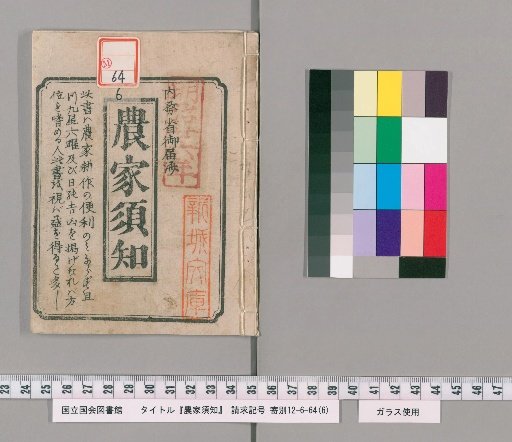 64
6
内務省御届済
農家須知
此書ハ農家耕作の便利のミならず且
九星六曜及び日取吉凶を掲げたれバ方
位を嗜める人此書を視バ益を得ること多し
23 24 25 26 27 28 29 30 31 32 33 34 35 36 37 38 39 40 41 42 43 44 45 46 47
国立国会図書館 タイトル『農家須知』 請求記号 寄別12-6-64(6) ガラス使用